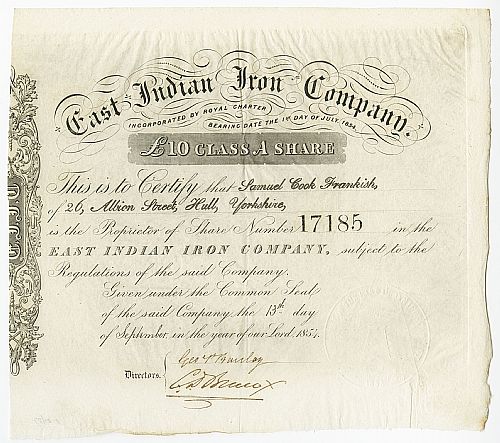 East Indian Iron Company.
INCORPORATED BY ROYAL CHARTER
BEARING DATE THE 1ST DAY OF JULY, 1854.
£10 CLASS A SHARE
This is to Certify that Samuel Cook Frankish,
of 26, Albion Street, Hull, Yorkshire,
is the Proprietor of Share Number 17185 in the
EAST INDIAN IRON COMPANY, subject to the
Regulations of the said Company.
Given under the Common Seal
of the said Company, the 13th day
of September, in the year of our Lord 1854.
Geo P Barclay
Directors.